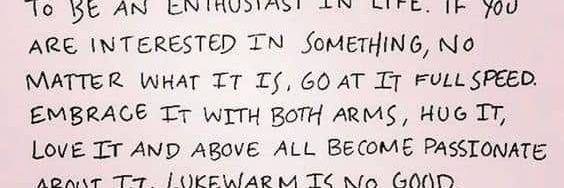 TO BE AN ENTHUSIAST IN LIFE. IF YOU
ARE INTERESTED IN SOMETHING, NO
MATTER WHAT IT IS, GO AT IT FULL SPEED.
EMBRACE IT WITH BOTH ARMS, HUG IT,
LOVE IT AND ABOVE ALL BECOME PASSIONATE
ABOUT IT. LUKEWARM IS NO GOOD